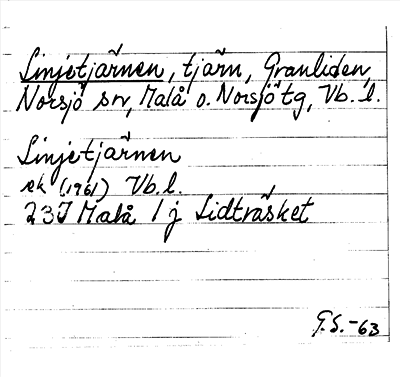 Linjetjärnen, tjärn, Granliden,
Norsjö sn, Malå o. Norsjö tg, Vb. l.
Linjetjärnen
ek (1961) Vb. l.
23J Malå 1 j Lidträsket
G.S.-63